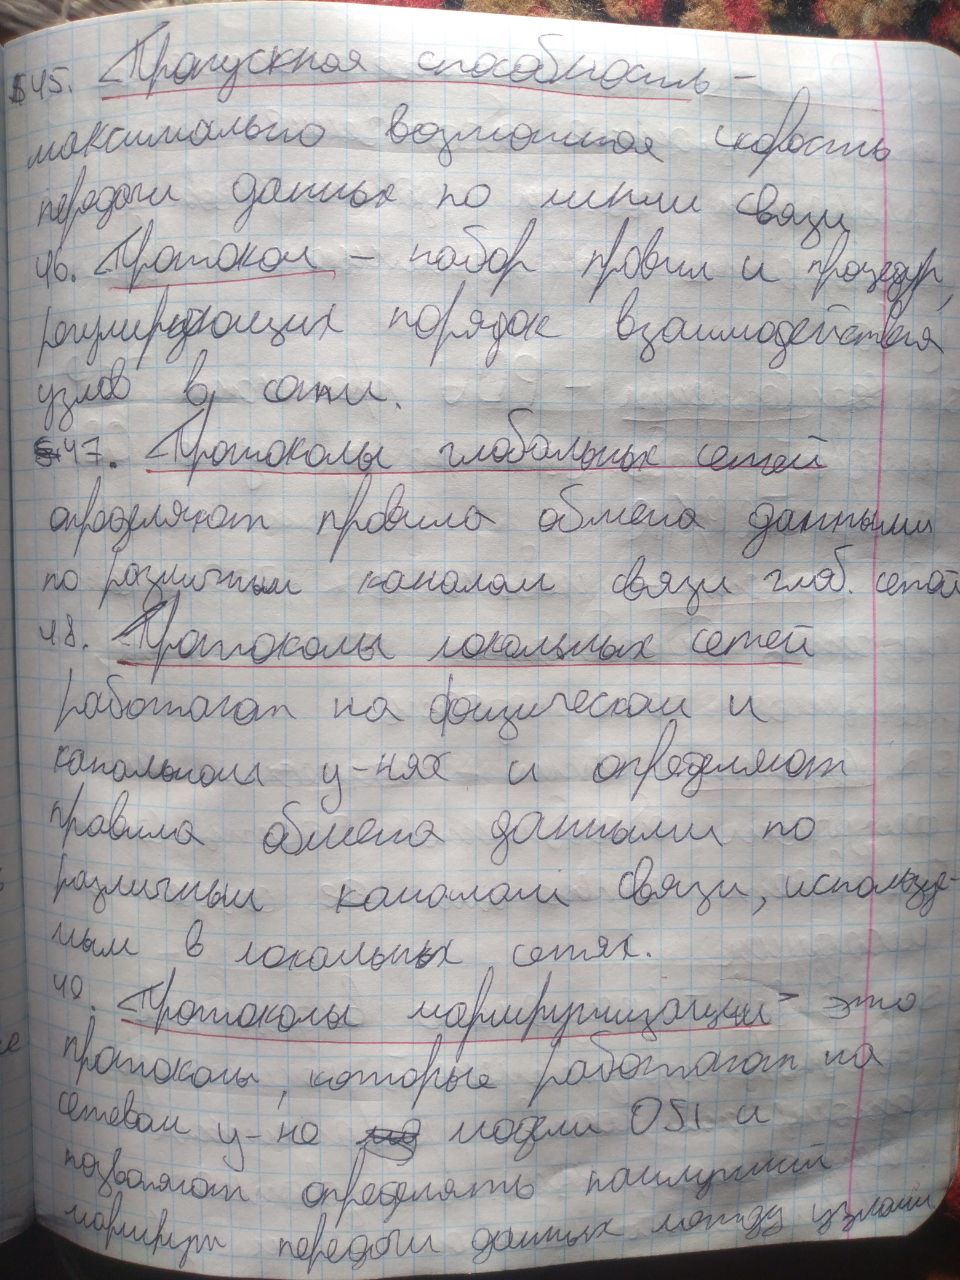 45. Пропускная способность -
максимально возможная скорость
передачи данных по линии связи
46. Протокол - набор правил и процедур,
регулирующих порядок взаимодействия
узлов в сети.
47. Протоколы глобальных сетей
определяют правила обмена данными
по различным каналам связи глоб. сетей
48. Протоколы локальных сетей
работают на физическом и
канальном у-нях и определяют
правила обмена данными по
различным каналам связи, используе-
мым в локальных сетях.
49. Протоколы маршрутизации - это
протоколы, которые работают на
сетевом у-не модели OSI и
позволяют определять наилучший
маршрут передачи данных между узлами